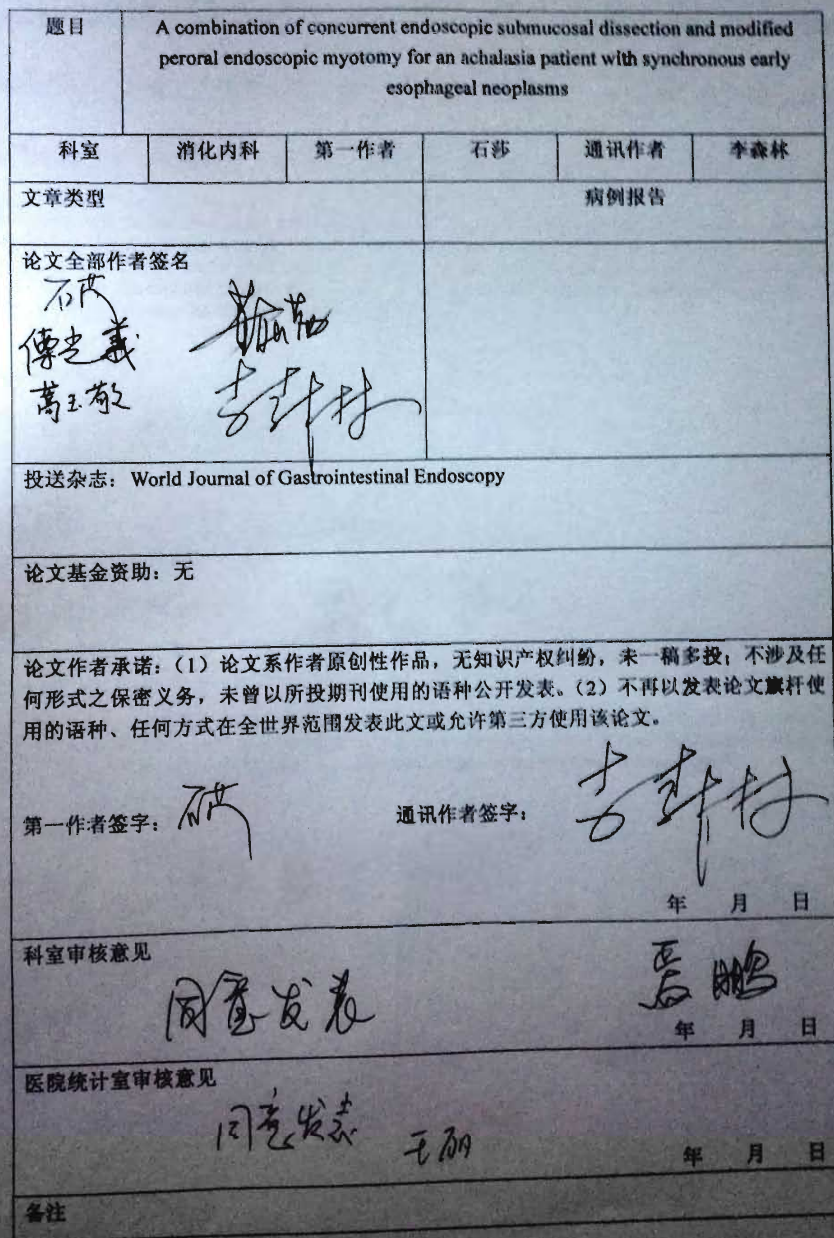 题目
A combination of concurrent endoscopic submucosal dissection and modified
peroral endoscopic myotomy for an achalasia patient with synchronous early
esophageal neoplasms
科室 消化内科 第一作者 石莎 通讯作者 李森林
文章类型 病例报告
论文全部作者签名
石莎
傅光義
葛玉敬
李森林
投送杂志：World Journal of Gastrointestinal Endoscopy
论文基金资助：无
论文作者承诺：（1）论文系作者原创性作品，无知识产权纠纷，未一稿多投；不涉及任
何形式之保密义务，未曾以所投期刊使用的语种公开发表。（2）不再以发表论文旗杆使
用的语种、任何方式在全世界范围发表此文或允许第三方使用该论文。
第一作者签字：石莎 通讯作者签字：李森林
年 月 日
科室审核意见
同意发表
年 月 日
医院统计室审核意见
同意发表 王丽
年 月 日
备注